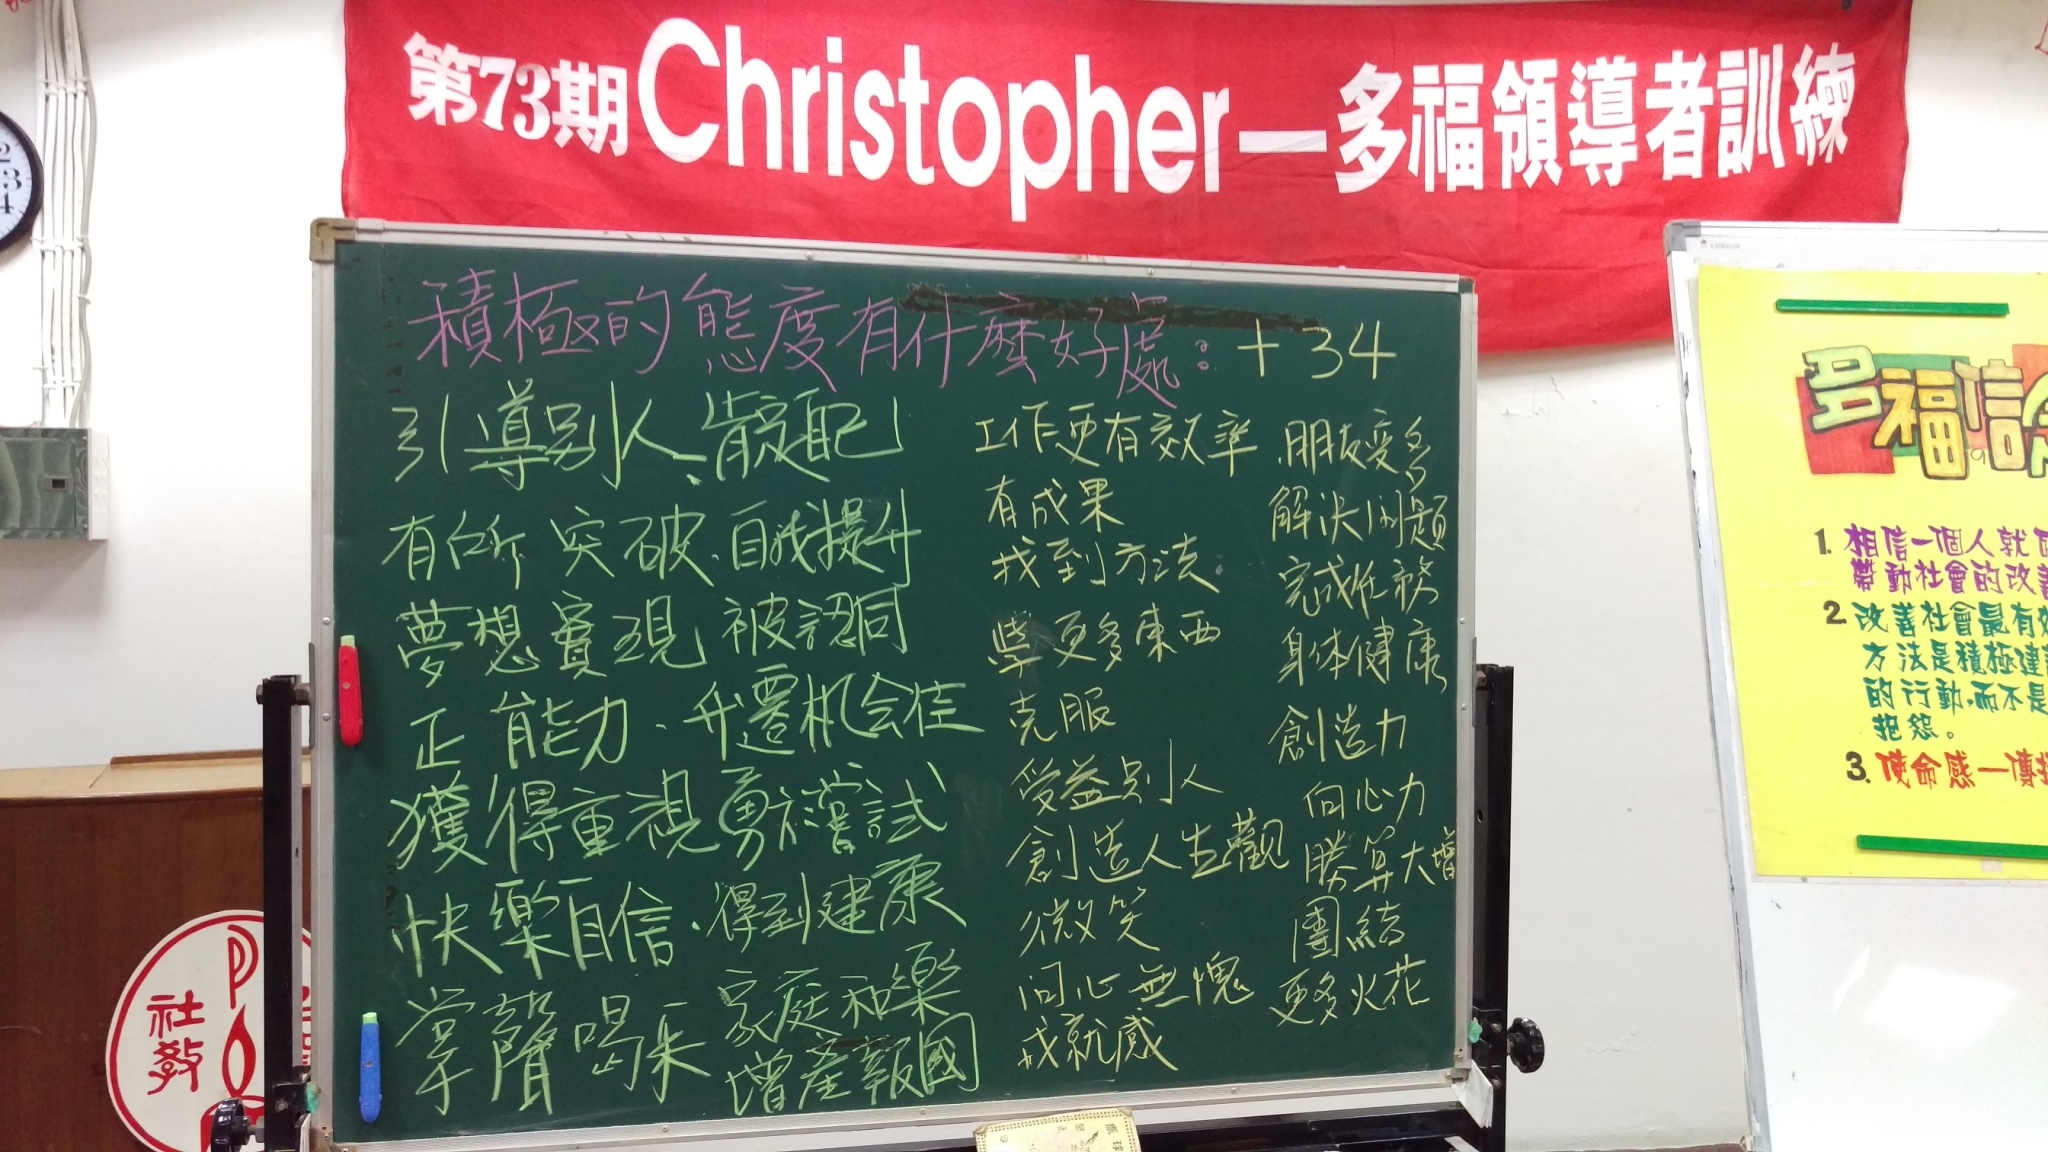 第73期Christopher—多福領導者訓練
積極的態度有什麼好處： +34
引導別人、肯定自己
有所突破.自我提升
夢想實現 被認同
正能力.升遷机会佳
獲得重視 勇於嘗試
快樂自信.得到健康
掌聲喝采 家庭和樂
增產報國
工作更有效率
有成果
找到方法
學更多東西
克服
受益別人
創造人生觀
微笑
问心無愧
成就感
朋友变多
解決问題
完成任務
身体健康
創造力
向心力
勝算大增
團結
更多火花
多福信
1. 相信一個人就
帶動社會的改
2. 改善社會最有
方法是積極建
的行動.而不是
抱怨。
3. 使命感—傳
社教
2
3
4